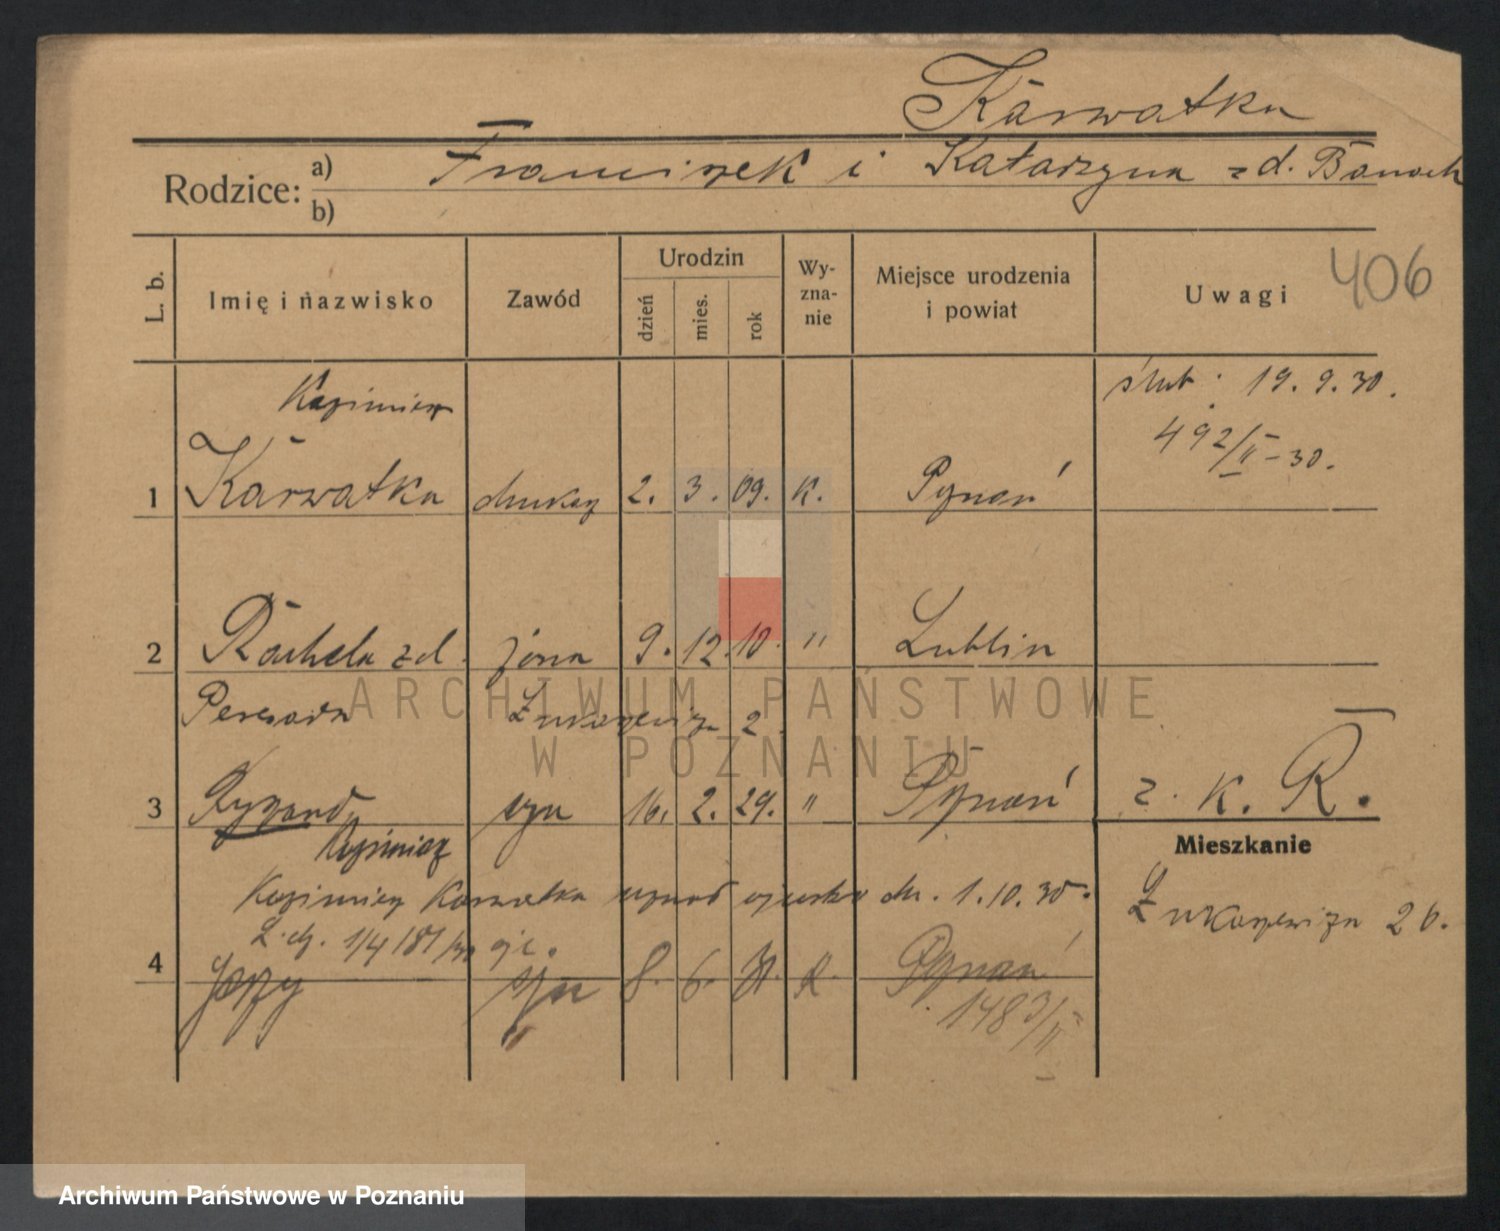 Karwatka
Rodzice: a) Franciszek i Katarzyna z d. Banach
b)
L. b.
Imię i nazwisko
Zawód
Urodzin
dzień
mies.
rok
Wy-
zna-
nie
Miejsce urodzenia
i powiat
Uwagi
406
Kazimierz
ślub: 19. 9. 30.
492/II-30.
1 Karwatka drukarz 2. 3. 09. k. Poznań
2 Rachela z d. żona 9. 12. 10. " Lublin
Łukaszewicza 2
3 Ryszard syn 16. 2. 29. " Poznań z. k. R.
Kazimierz
Mieszkanie
Kazimierz Karwatka uznał ojcostwo dn. 1. 10. 30.
Łukaszewicza 26.
4 Jerzy syn 8. 6. 31. R. Poznań
1483/II
ARCHIWUM PAŃSTWOWE
W POZNANIU
Archiwum Państwowe w Poznaniu